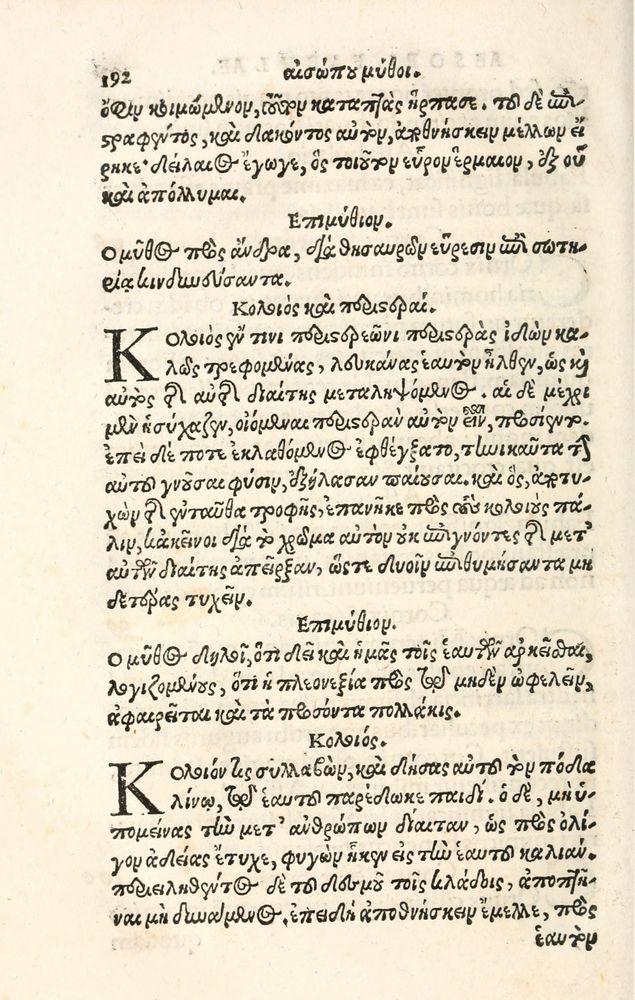 192 αἰσώπου μῦθοι.
ὄφιν κοιμώμενον, τοῦτον καταπτὰς ἥρπασε. τοῦ δὲ ἐπι-
στραφέντος, καὶ δακόντος αὐτὸν, ἀποθνήσκειν μέλλων εἴ-
ρηκε· δείλαιος ἔγωγε, ὃς τοιοῦτον εὗρον ἕρμαιον, ἐξ οὗ
καὶ ἀπόλλυμαι.
Ἐπιμύθιον.
Ὁ μῦθος πρὸς ἄνδρα, διὰ θησαυρῶν εὕρεσιν ἐπὶ σωτη-
ρίᾳ κινδυνεύσαντα.
Κολοιὸς καὶ περιστεραί.
Κολοιὸς ἔν τινι περιστρεῶνι περιστερὰς ἰδὼν κα-
λῶς τρεφομένας, λευκάνας ἑαυτὸν ἦλθεν, ὡς καὶ
αὐτὸς τῆς αὐτῆς διαίτης μεταληψόμενος. αἱ δὲ μέχρι
μὲν ἡσύχαζεν, οἰόμεναι περιστερὰν αὐτὸν εἶναι, προσίεντο.
ἐπεὶ δέ ποτε ἐκλαθόμενος ἐφθέγξατο, τηνικαῦτα τὴν
αὐτοῦ γνοῦσαι φύσιν, ἐξήλασαν παίουσαι. καὶ ὃς, ἀποτυ-
χὼν τῆς ἐνταῦθα τροφῆς, ἐπανῆκε πρὸς τοὺς κολοιοὺς πά-
λιν, κἀκεῖνοι διὰ τὸ χρῶμα αὐτὸν οὐκ ἐπιγνόντες τῆς μετ'
αὐτῶν διαίτης ἀπεῖρξαν, ὥστε δυοῖν ἐπιθυμήσαντα μη
δετέρας τυχεῖν.
Ἐπιμύθιον.
Ὁ μῦθος δηλοῖ, ὅτι δεῖ καὶ ἡμᾶς τοῖς ἑαυτῶν ἀρκεῖσθαι,
λογιζομένους, ὅτι ἡ πλεονεξία πρὸς τῷ μηδὲν ὠφελεῖν,
ἀφαιρεῖται καὶ τὰ προσόντα πολλάκις.
Κολοιός.
Κολοιόν τις συλλαβὼν, καὶ δήσας αὐτοῦ τὸν πόδα
λίνῳ, τῷ ἑαυτοῦ παρέδωκε παιδί. ὁ δὲ, μὴ ὑ-
πομείνας τὴν μετ' ἀνθρώπων δίαιταν, ὡς πρὸς ὀλί-
γον ἀδείας ἔτυχε, φυγὼν ἧκεν εἰς τὴν ἑαυτοῦ καλιάν.
περιειληθέντος δὲ τοῦ δεσμοῦ τοῖς κλάδοις, ἀποπτῆ-
ναι μὴ δυνάμενος. ἐπειδὴ ἀποθνήσκειν ἔμελλε, πρὸς
ἑαυτὸν